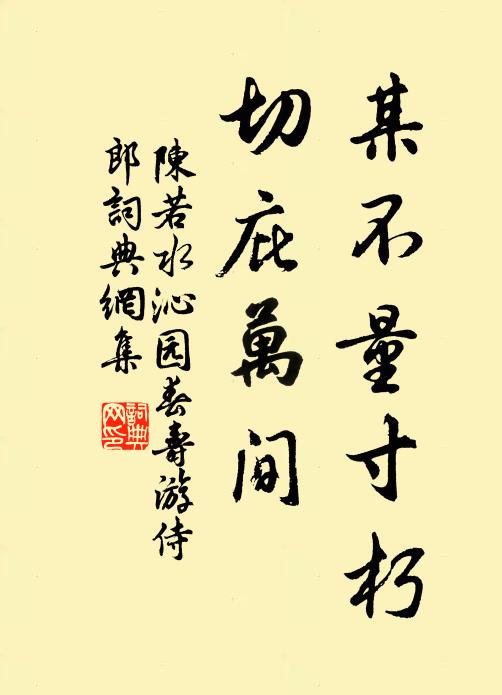 某不量寸朽
切庇萬間
陳若水沁园春壽游侍
郎詞典網集
詞典
网印